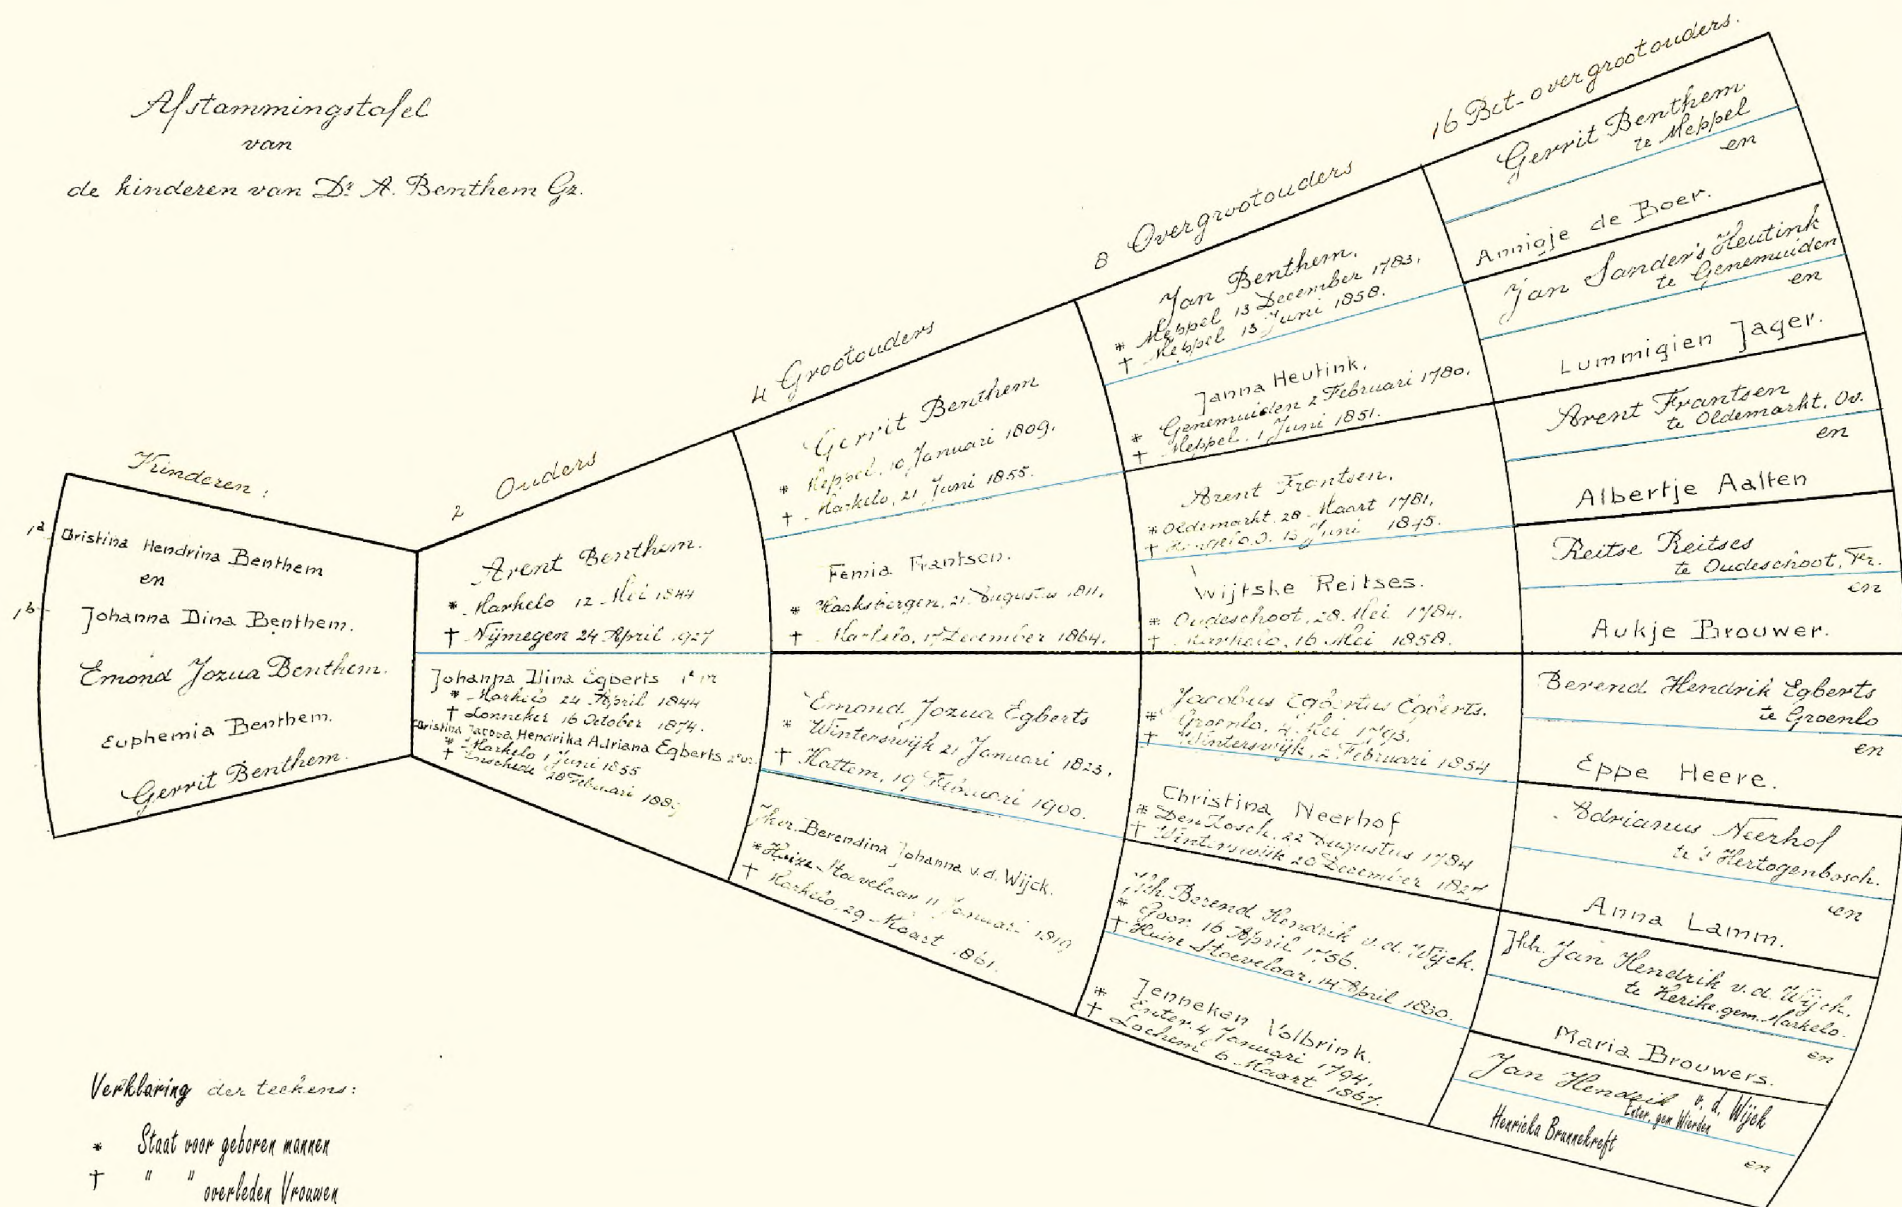 Afstammingstafel
van
de kinderen van Dr A. Benthem Gz.
Kinderen:
1a Cristina Hendrina Benthem
en
1b Johanna Dina Benthem.
Emond Jozua Benthem.
Euphemia Benthem.
Gerrit Benthem.
2 Ouders
Arent Benthem.
* Markelo 12 Mei 1844
† Nijmegen 24 April 1927
Johanna Dina Egberts 1e vr
* Markelo 24 April 1844
† Lonneker 16 October 1874.
Christina Jacoba Hendrika Adriana Egberts 2e vr.
* Markelo 1 Juni 1855
† Enschede 28 Februari
4 Grootouders
Gerrit Benthem
* Meppel, 10 Januari 1809.
† Markelo, 21 Juni 1855.
Femia Frantsen.
* Haaksbergen, 21 Augustus 1811.
† Markelo, 17 December 1864.
Emond Jozua Egberts
* Winterswijk 21 Januari 1823.
† Hattem, 19 Februari 1900.
Jkvr. Berendina Johanna v.d. Wijck.
* Huize Stoevelaar 11 Januari 1819
† Markelo, 29 Maart 1861.
8 Overgrootouders
Jan Benthem.
* Meppel 13 December 1783.
† Meppel 13 Juni 1858.
Janna Heutink.
* Genemuiden 2 Februari 1780.
† Meppel, 1 Juni 1851.
Arent Frantsen.
* Oldemarkt, 28 Maart 1781.
† Juni 1845.
Wijtske Reitses.
* Oudeschoot, 28 Mei 1784.
† Markelo, 16 Mei 1858.
Jacobus Egbertus Egberts.
* Groenlo, 4 Mei 1793.
† Winterswijk, 2 Februari 1854
Christina Neerhof
* Den Bosch, 22 Augustus 1784
† Winterswijk 20 December 1827.
Jhh. Berend Hendrik v.d. Wijck.
* Goor 16 April 1756.
† Huize Stoevelaar, 14 April 1830.
Jenneken Volbrink.
* Enter 4 Januari 1794.
† Lochem 6 Maart 1867.
16 Bet-overgrootouders.
Gerrit Benthem
te Meppel
en
Annigje de Boer.
Jan Sanders Heutink
te Genemuiden
en
Lummigien Jager.
Arent Frantsen
te Oldemarkt, Ov.
en
Albertje Aalten
Reitse Reitses
te Oudeschoot, Fr.
en
Aukje Brouwer.
Berend Hendrik Egberts
te Groenlo
en
Eppe Heere.
Adrianus Neerhof
te 's Hertogenbosch.
en
Anna Lamm.
Jhh. Jan Hendrik v.d. Wijck.
te Herike gem. Markelo.
en
Maria Brouwers.
Jan Hendrik v. d. Wijck
Enter, gem Wierden
Henricka Brunnekreft
en
Verklaring der teekens:
* Staat voor geboren mannen
† " " overleden Vrouwen